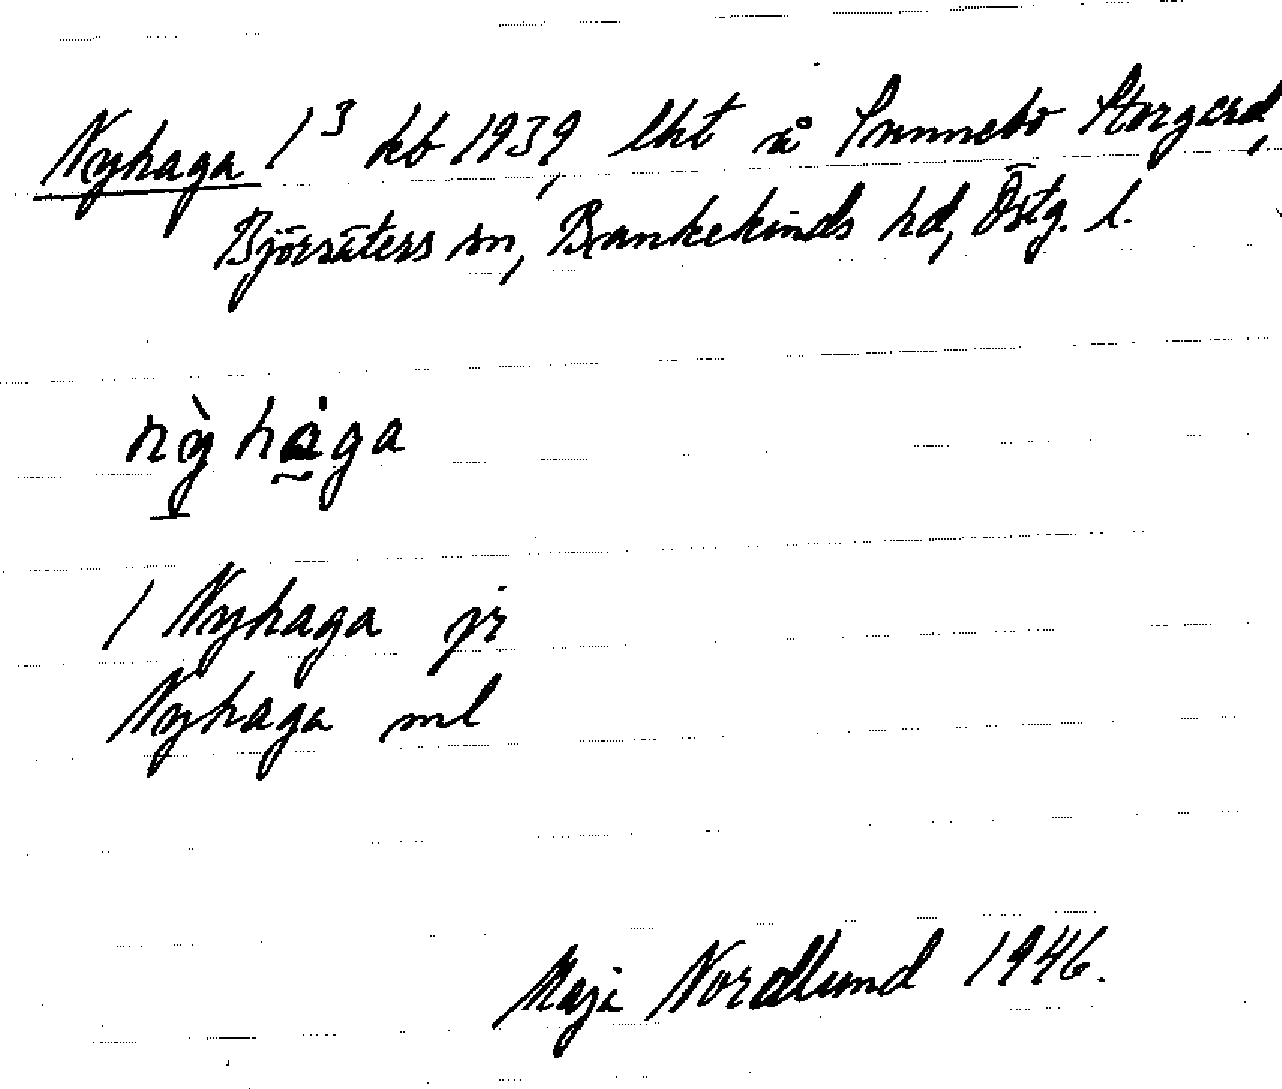 Nyhaga 1³ kb 1939, lht å Sunnebo Storgård,
Björsäters sn, Bankekinds hd, Östg. l.
nỳhȧga
1 Nyhaga jr
Nyhaga ml
Maja Nordlund 1946.